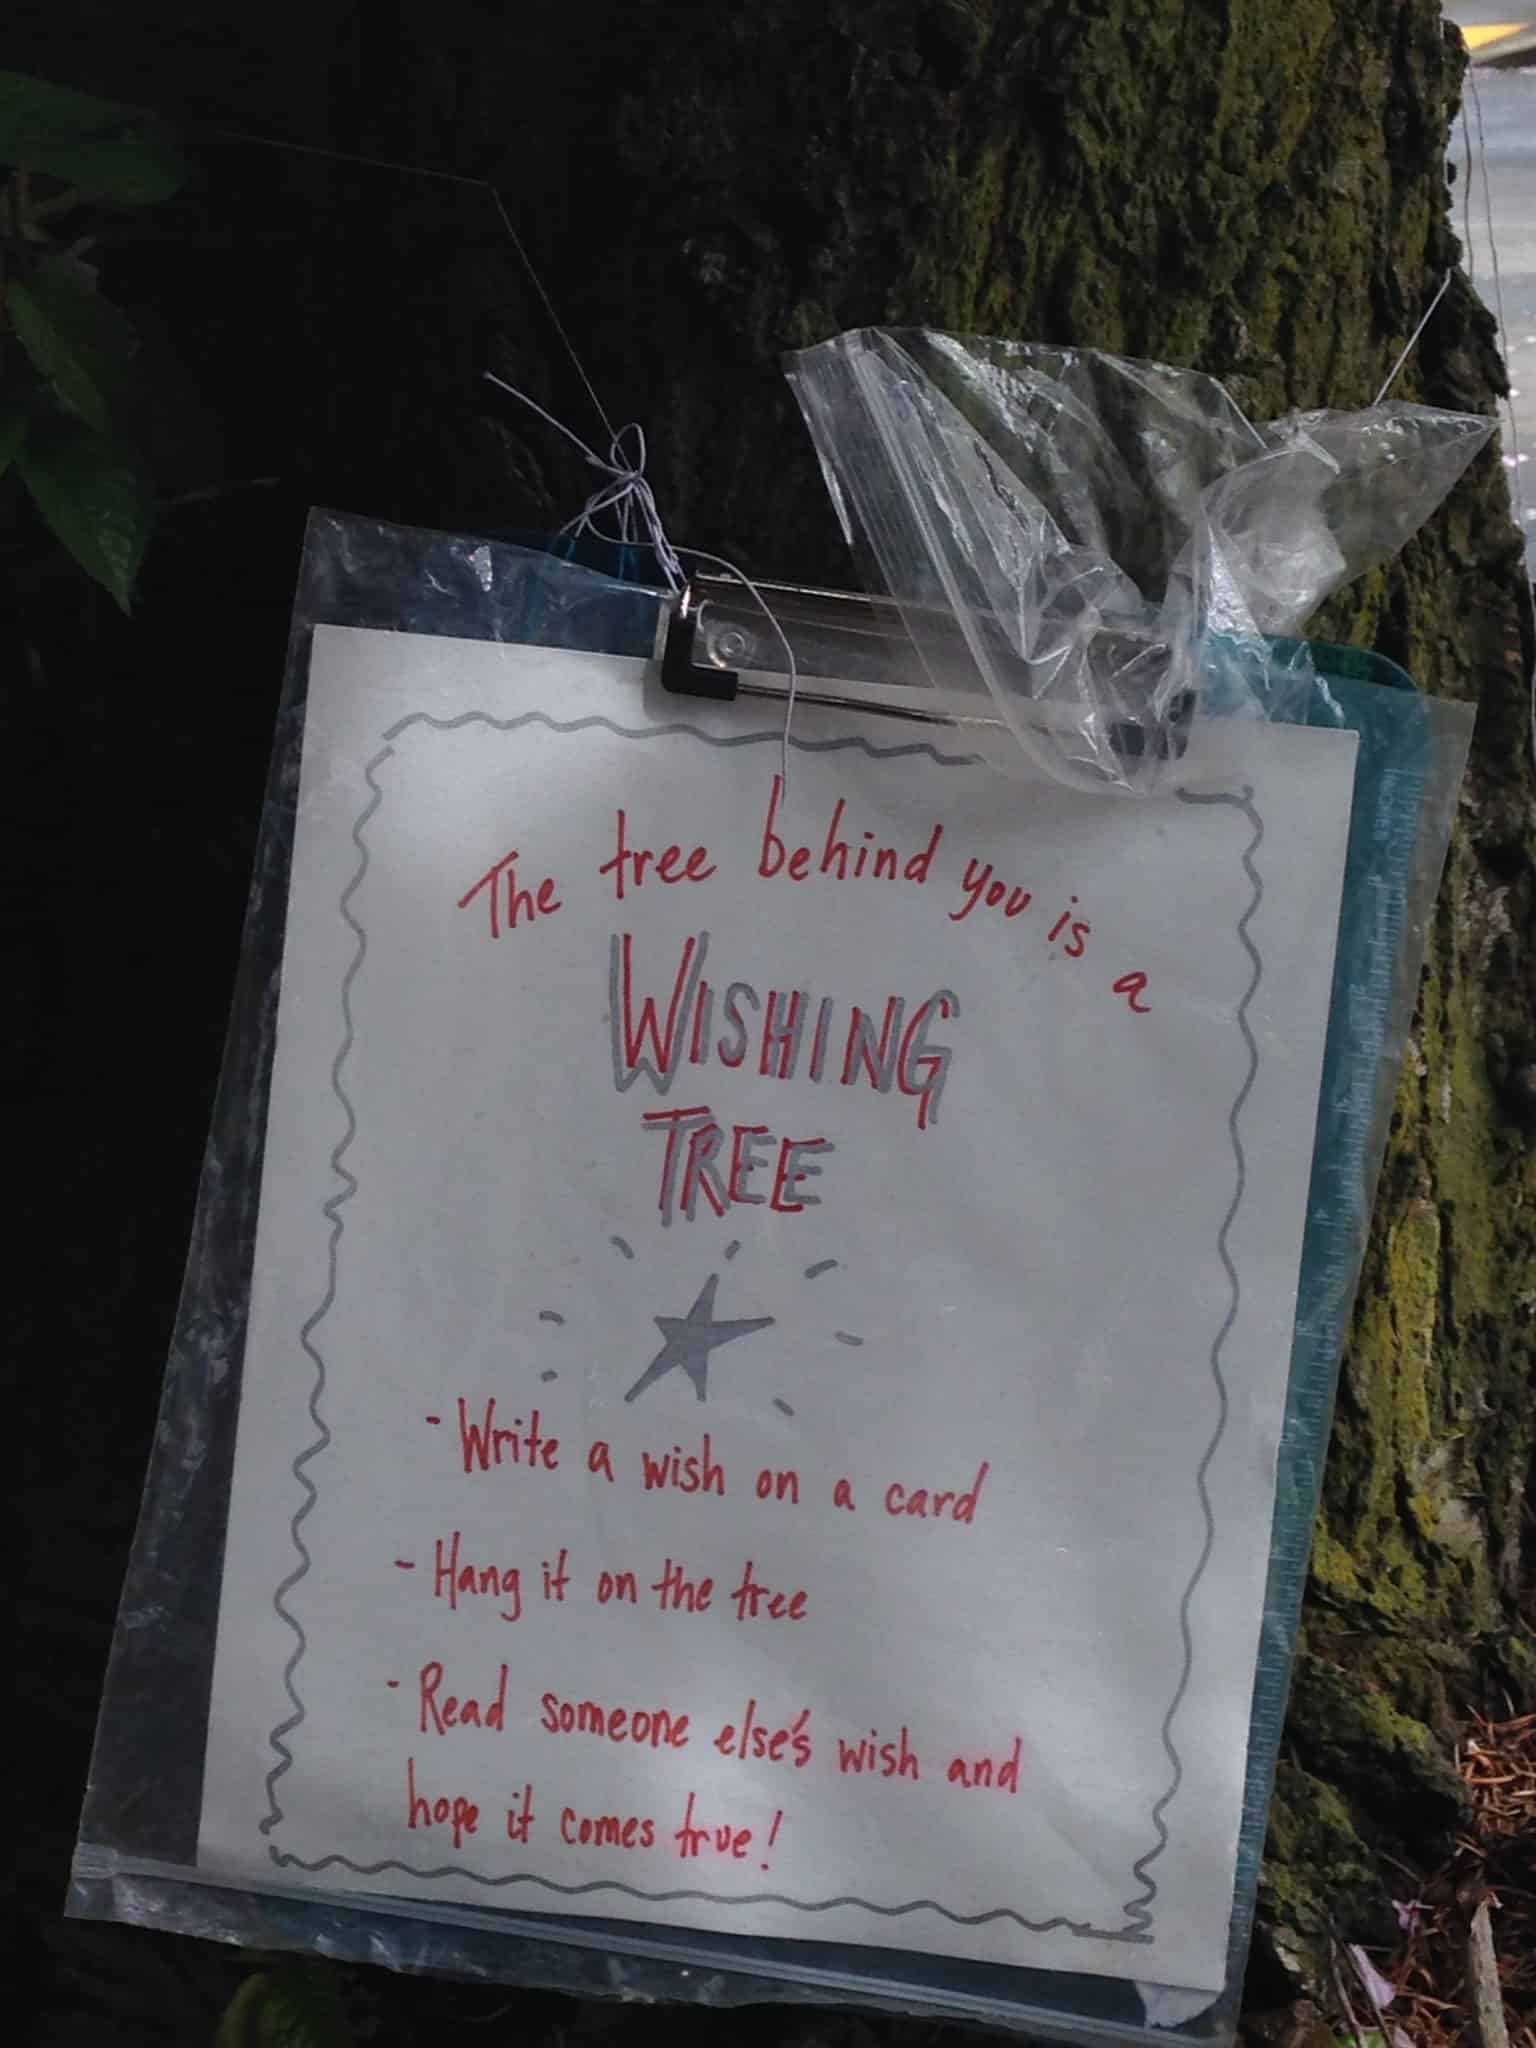 The tree behind you is a
WISHING
TREE
- Write a wish on a card
- Hang it on the tree
- Read someone else's wish and
hope it comes true!
INCHES